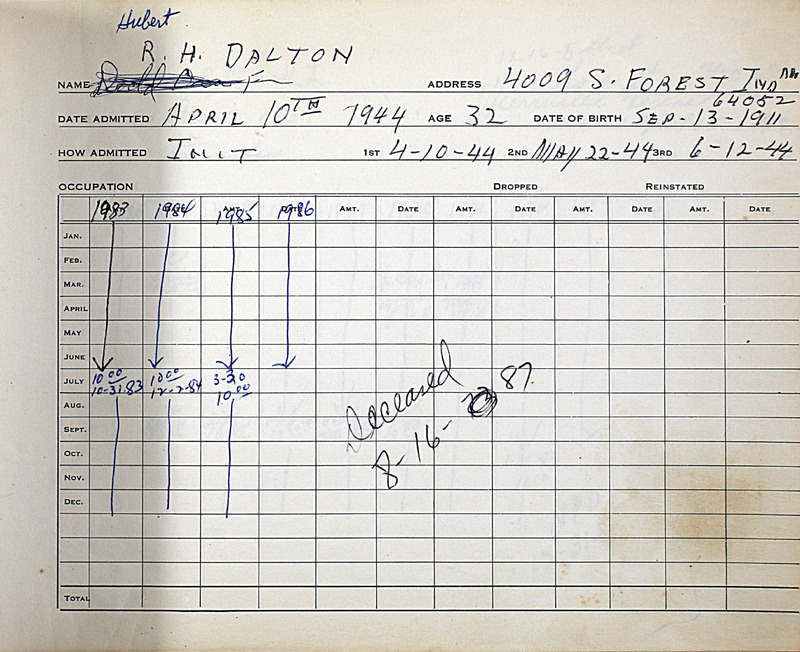 Hubert
R. H. DALTON
NAME ADDRESS 4009 S. FOREST IND MO
64052
DATE ADMITTED APRIL 10TH 1944 AGE 32 DATE OF BIRTH SEP-13-1911
HOW ADMITTED INIT 1ST 4-10-44 2ND MAY 22-44 3RD 6-12-44
OCCUPATION DROPPED REINSTATED
1983 1984 1985 1986 AMT. DATE AMT. DATE AMT. DATE AMT. DATE
JAN.
FEB.
MAR.
APRIL
MAY
JUNE
JULY 10 00 10 00 3-20
10-31-83 12-2-84 10 00
AUG.
SEPT.
OCT.
NOV.
DEC.
TOTAL
Deceased
8-16- 87